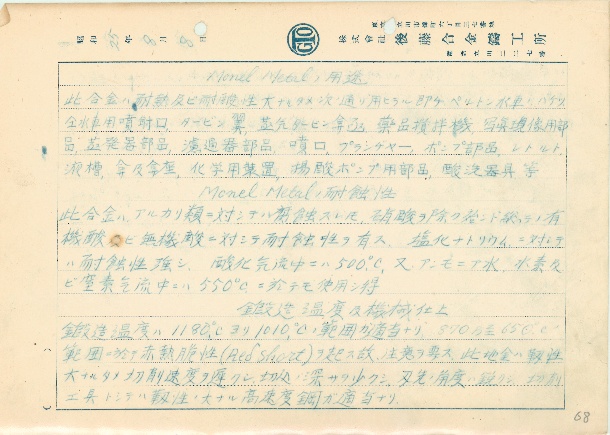 昭和25年8月8日
株式會社 後藤合金鑄工所
Monel Metalノ用途
此合金ハ耐熱及ビ耐酸性大ナルタメ次ノ通リ用ヒラル即チ ペルトン水車ノバケツ
水車用噴射口, タービン翼, 蒸気タービン弁, 薬品攪拌機, 写真現像用部
品, 蒸発器部品, 濾過器部品, 噴口, プランヂャー, ポンプ部品, レトルト
弁及弁座, 化学用装置, ポンプ用部品, 酸洗器具 等
Monel Metalノ耐蝕性
此合金ハアルカリ類ニ対シテハ 硝酸ヲ除ク殆ンド総テノ有
機酸 ビ無機酸ニ対シテ耐蝕性ヲ有ス、塩化ナトリウムニ対シテ
ハ耐蝕性強シ、酸化気流中ニハ500℃, 又アンモニア水、水素及
ビ窒素気流中ニハ550℃ニ於テモ使用シ得
鍛造温度及機械仕上
鍛造温度ハ1180℃ヨリ1010℃ノ範囲ガ適当ナリ
範囲ニ於テ赤熱脆性(Red Short)ヲ起ス故, 注意ヲ要ス, 此地金ハ靱性
大ナルタメ切削速度ヲ遅クシ, 切込ノ深サヲ少クシ, 刃先ノ角度ヲ鋭クシ, 切削
工具トシテハ靱性ノ大ナル高速度鋼ガ適当ナリ.
68